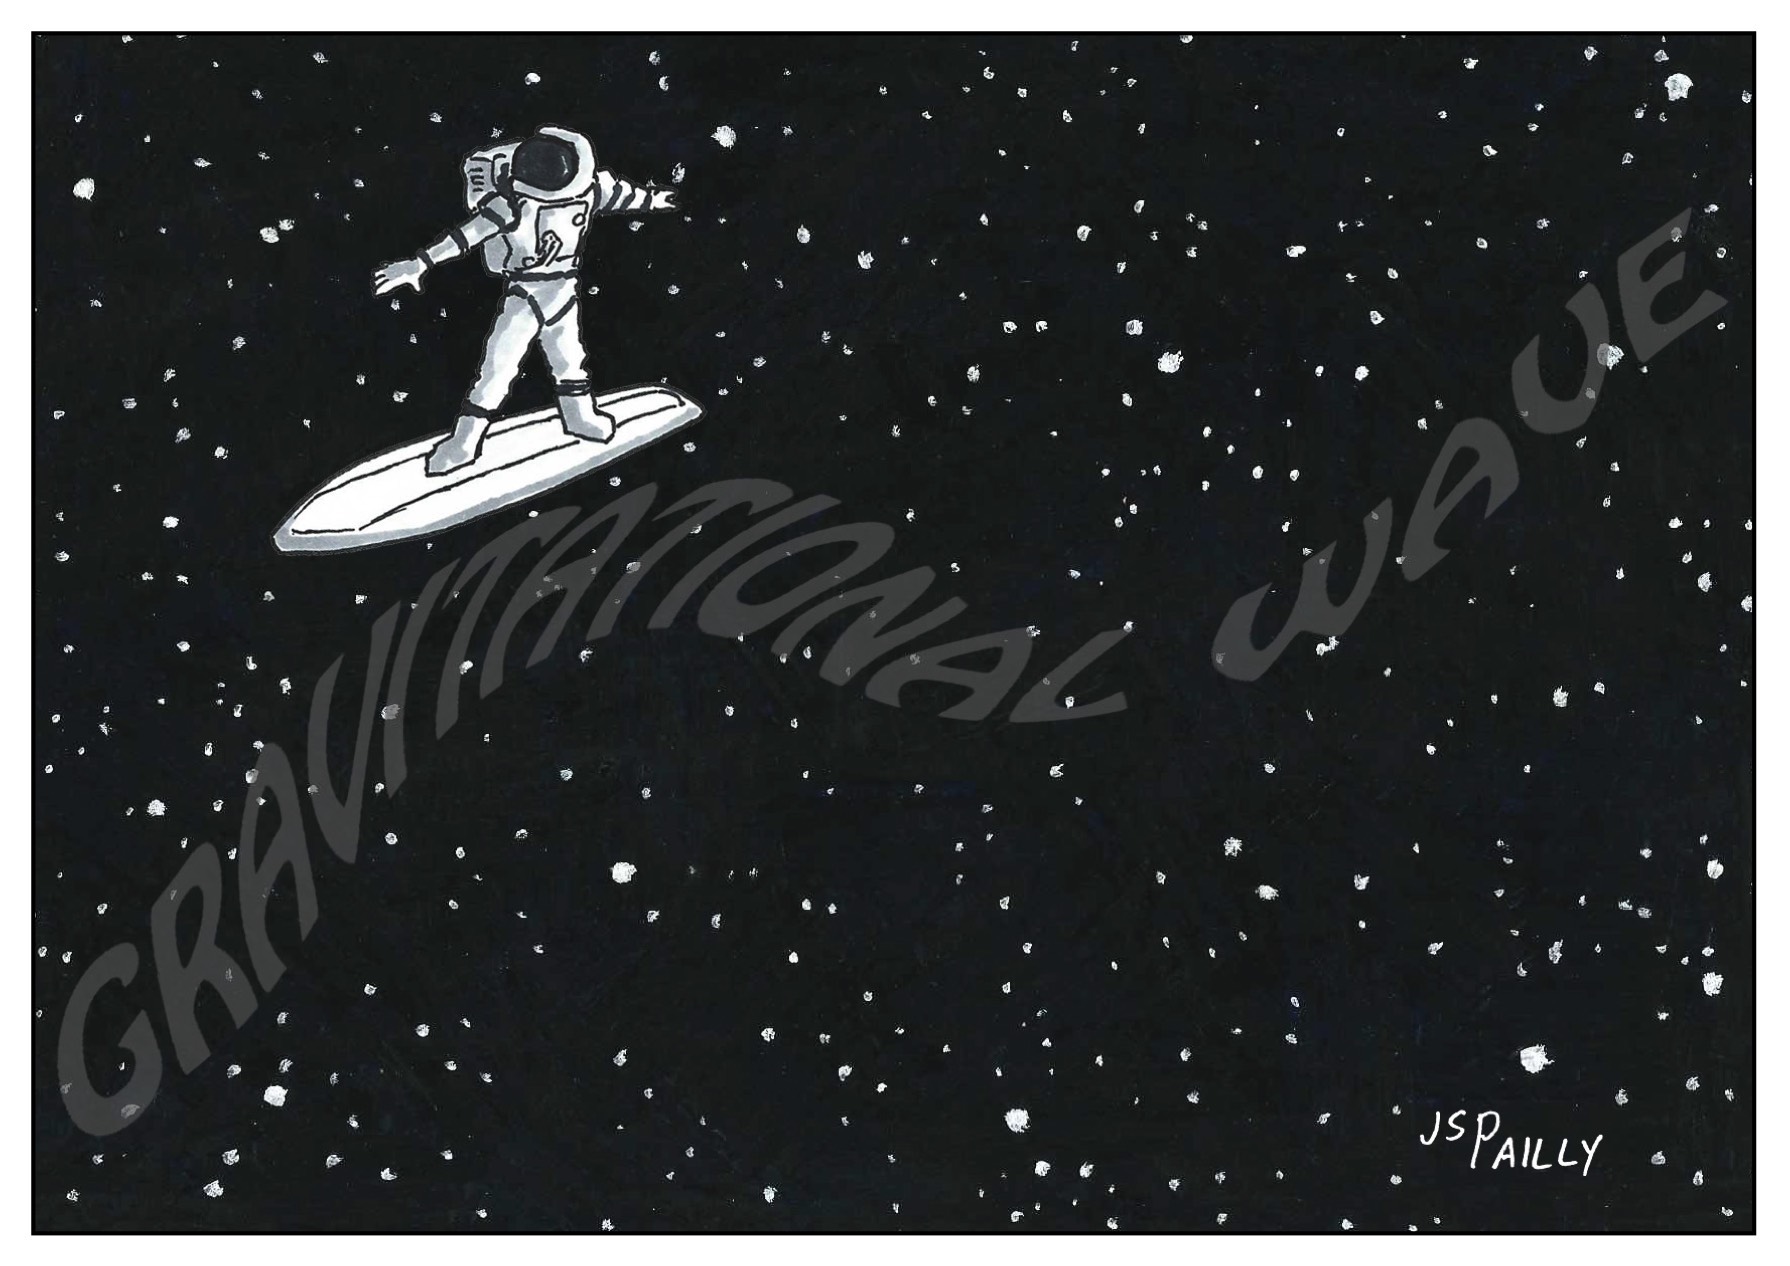 GRAVITATIONAL WAVE
JSPAILLY